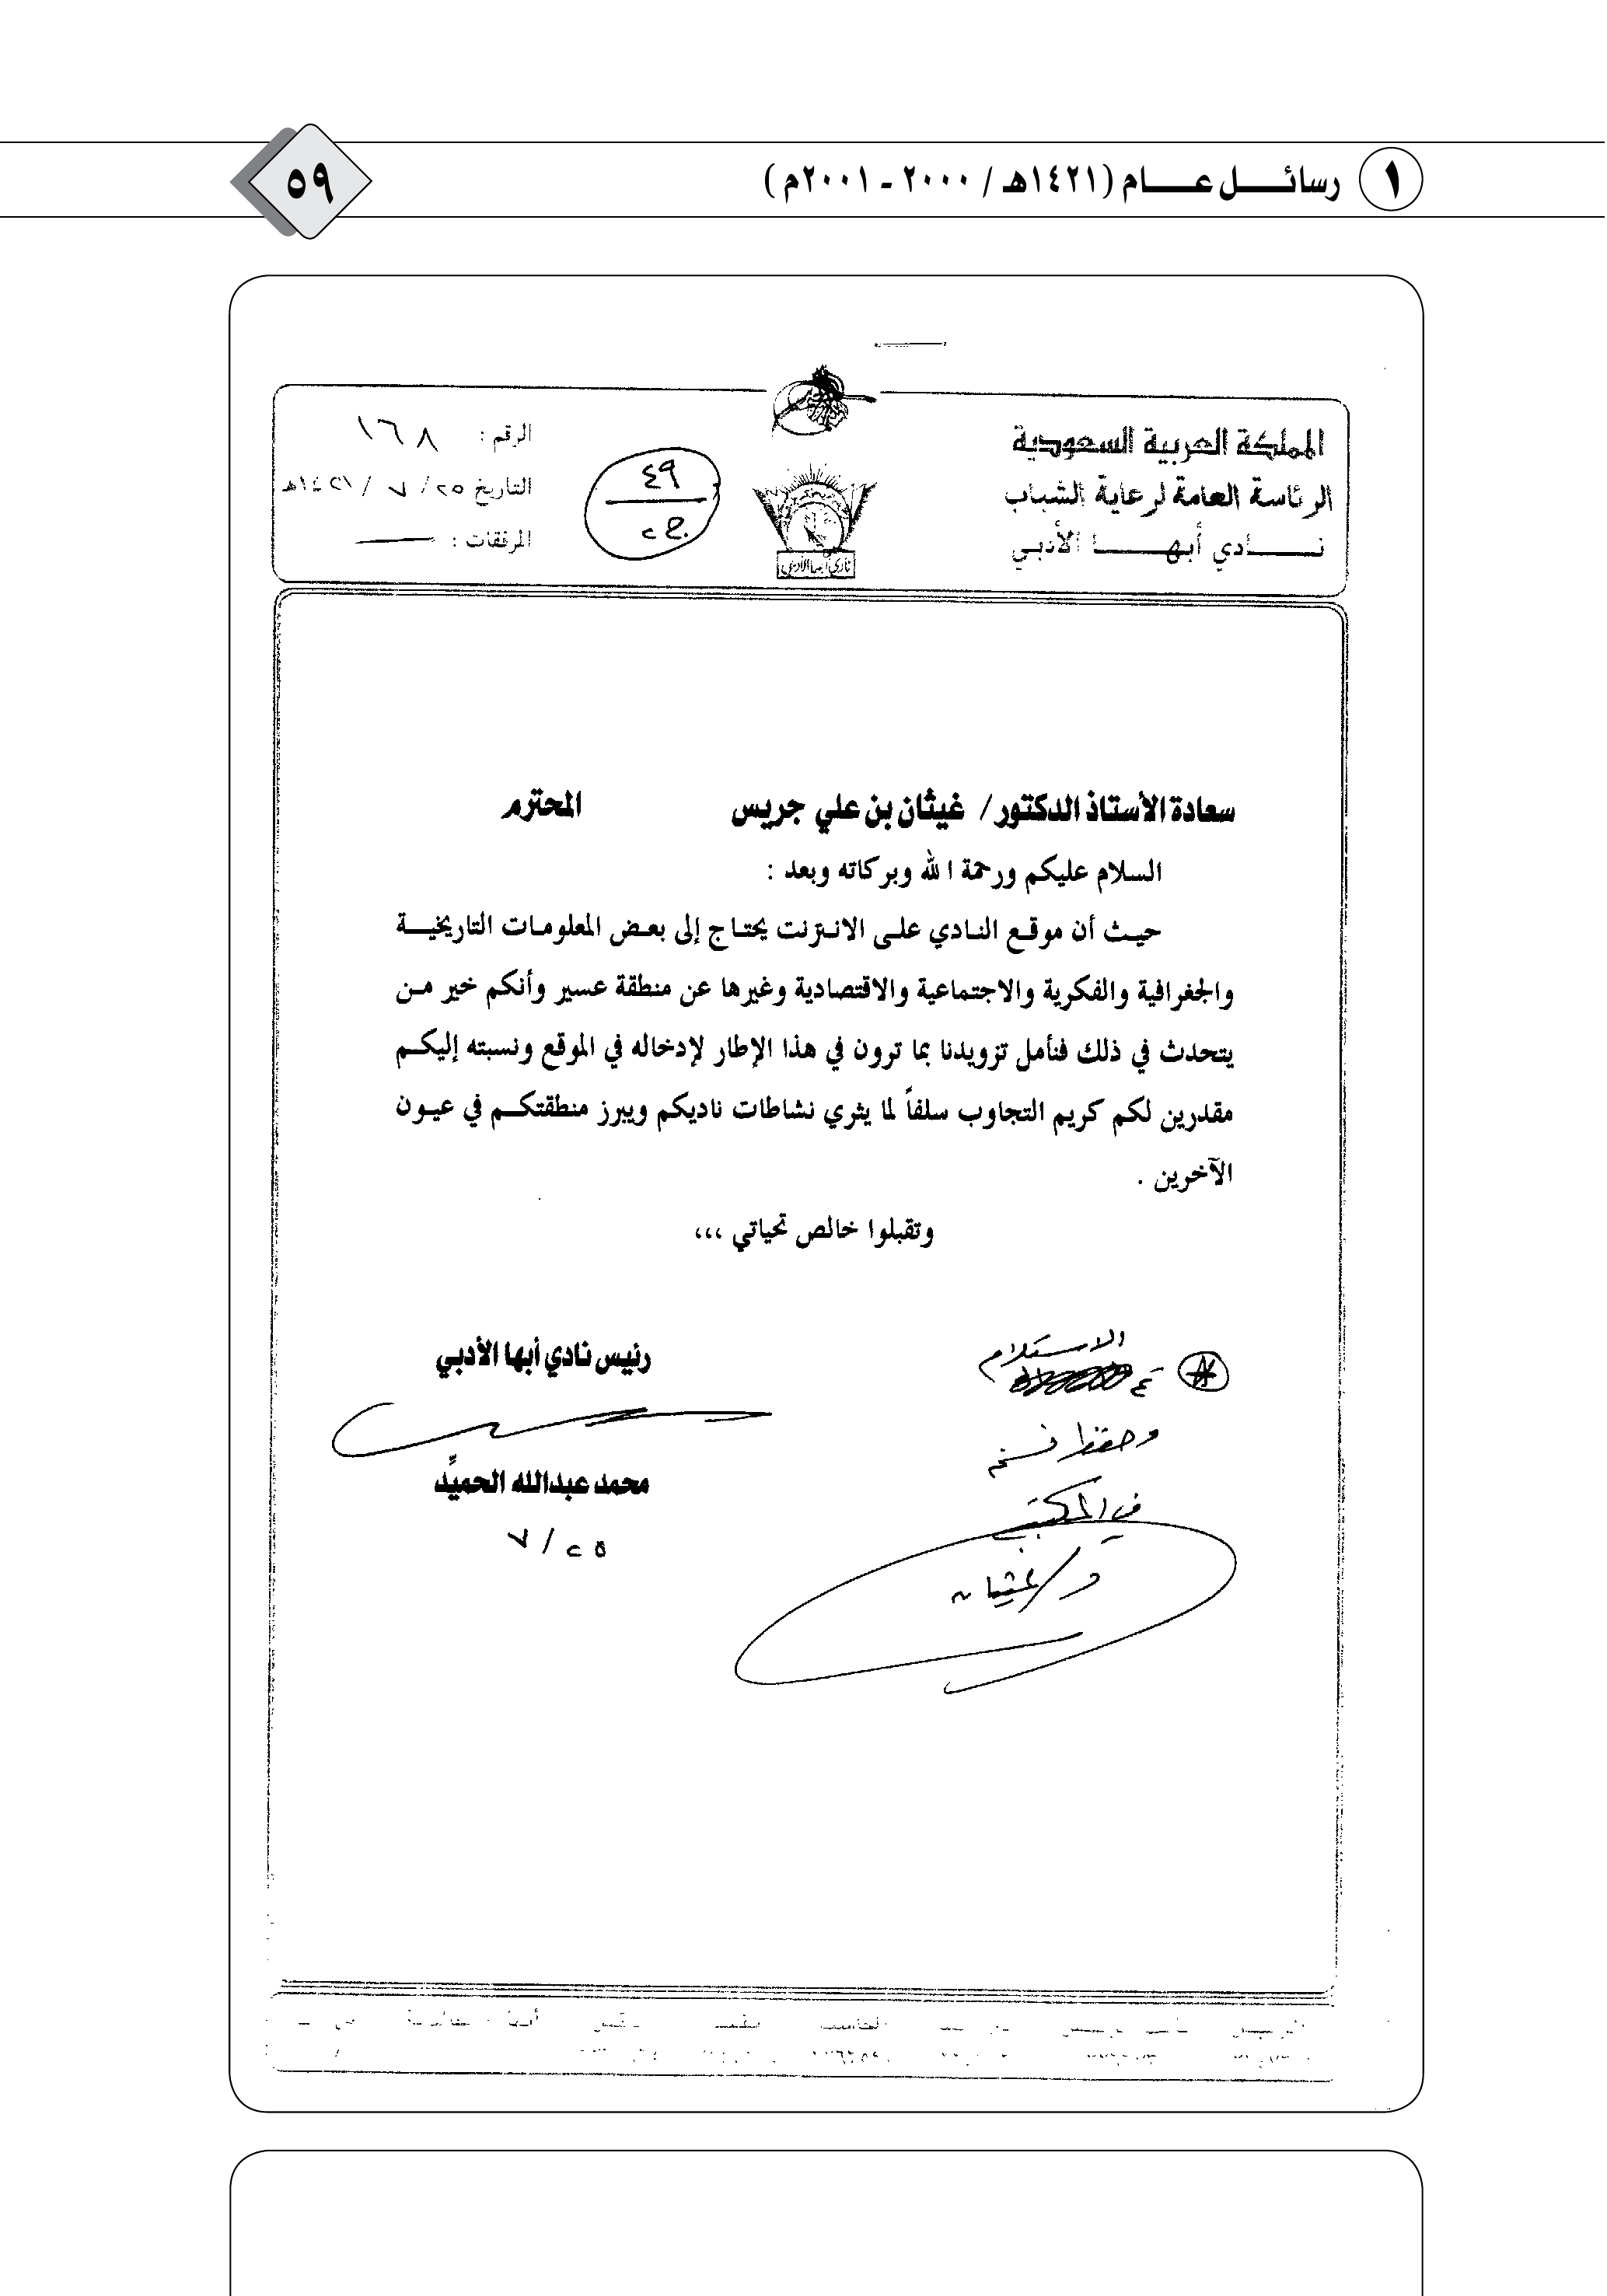 ١ رسائل عام (١٤٢١هـ / ٢٠٠٠ - ٢٠٠١م )
٥٩
المملكة العربية السعودية
الرئاسة العامة لرعاية الشباب
نادي أبها الأدبي
نادي أبها الأدبي
٤٩
ج٢
الرقم : ١٦٨
التاريخ ٢٥/ ٧ /١٤٢١هـ
المرفقات :
سعادة الأستاذ الدكتور/ غيثان بن علي جريس المحترم
السلام عليكم ورحمة الله وبركاته وبعد :
حيث أن موقع النادي على الانترنت يحتاج إلى بعض المعلومات التاريخية
والجغرافية والفكرية والاجتماعية والاقتصادية وغيرها عن منطقة عسير وأنكم خير من
يتحدث في ذلك فنأمل تزويدنا بما ترون في هذا الإطار لإدخاله في الموقع ونسبته إليكم
مقدرين لكم كريم التجاوب سلفاً لما يثري نشاطات ناديكم ويبرز منطقتكم في عيون
الآخرين .
وتقبلوا خالص تحياتي ،،،
رئيس نادي أبها الأدبي
محمد عبدالله الحميِّد
٢٥ / ٧
الاستلام
وحفظ نسخة
في المكتبة
د/غيثان